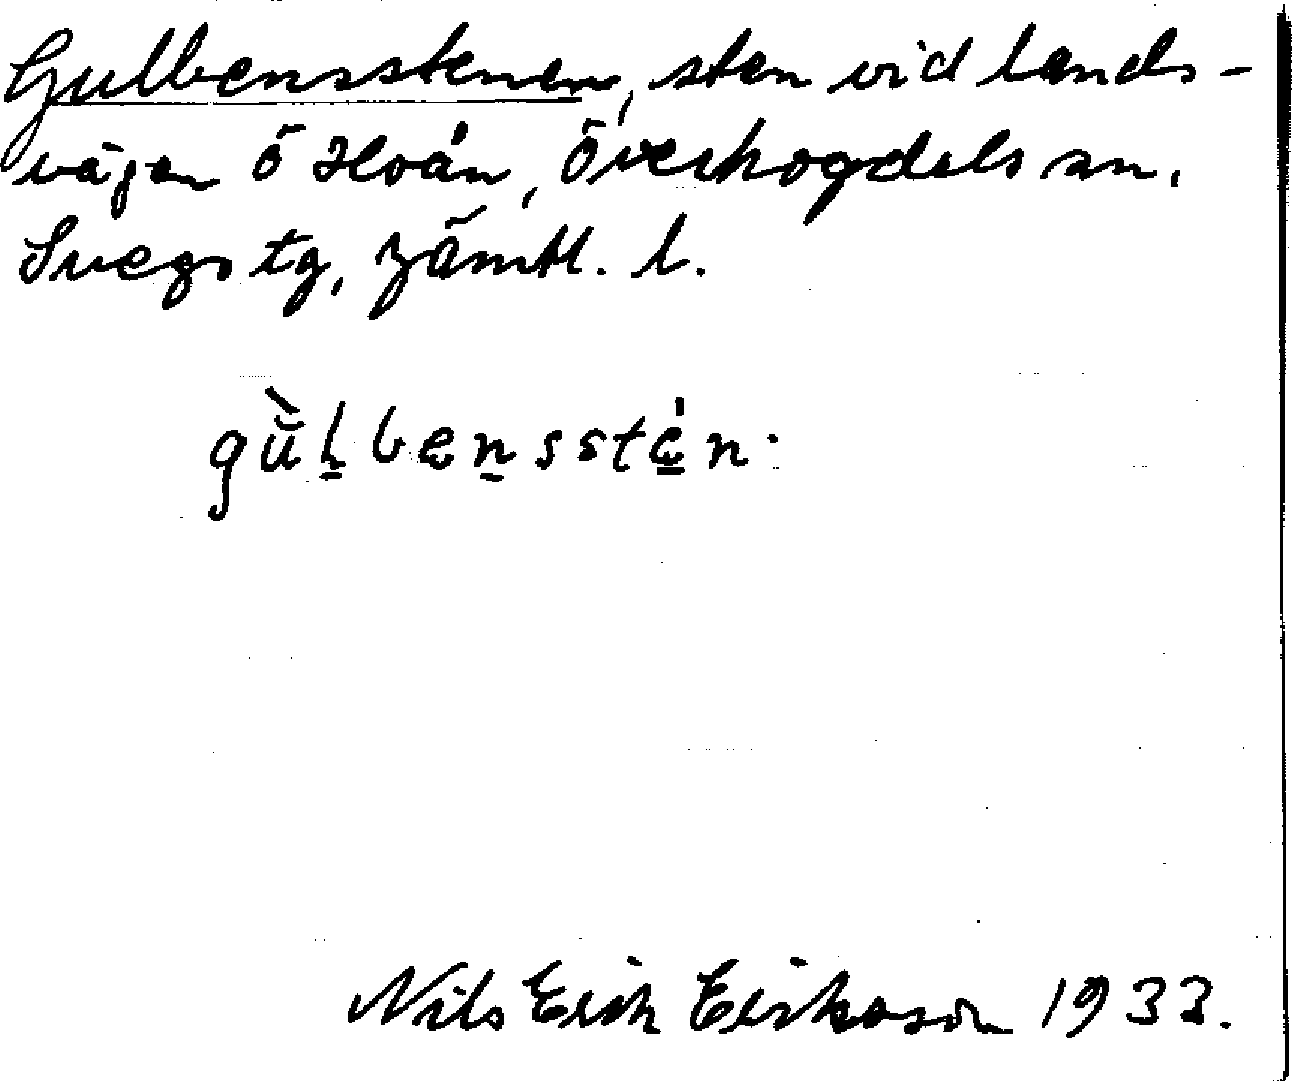 Gulbensstenen, sten vid lands-
vägen ö Hoån, Överhogdals sn,
Svegs tg, Jämtl. l.
gùlbensstén.
Nils Erik Erikson 1933.